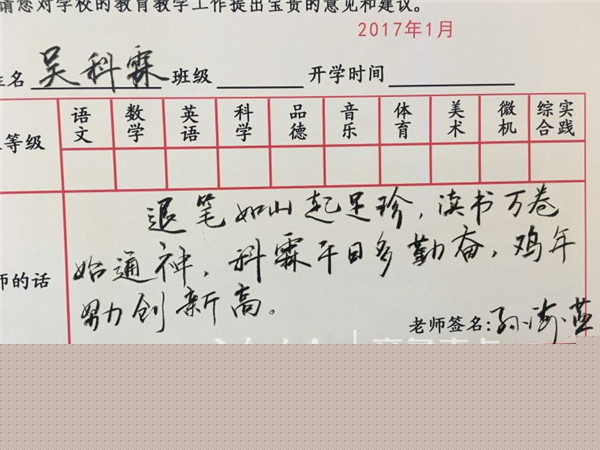 请您对学校的教育教学工作提出宝贵的意见和建议。
2017年1月
姓名 吴科霖 班级 开学时间
等级 语文 数学 英语 科学 品德 音乐 体育 美术 微机 综合实践
师的话
退笔如山起足珍，读书万卷
始通神，科霖平日多勤奋，鸡年
努力创新高。
老师签名:孙